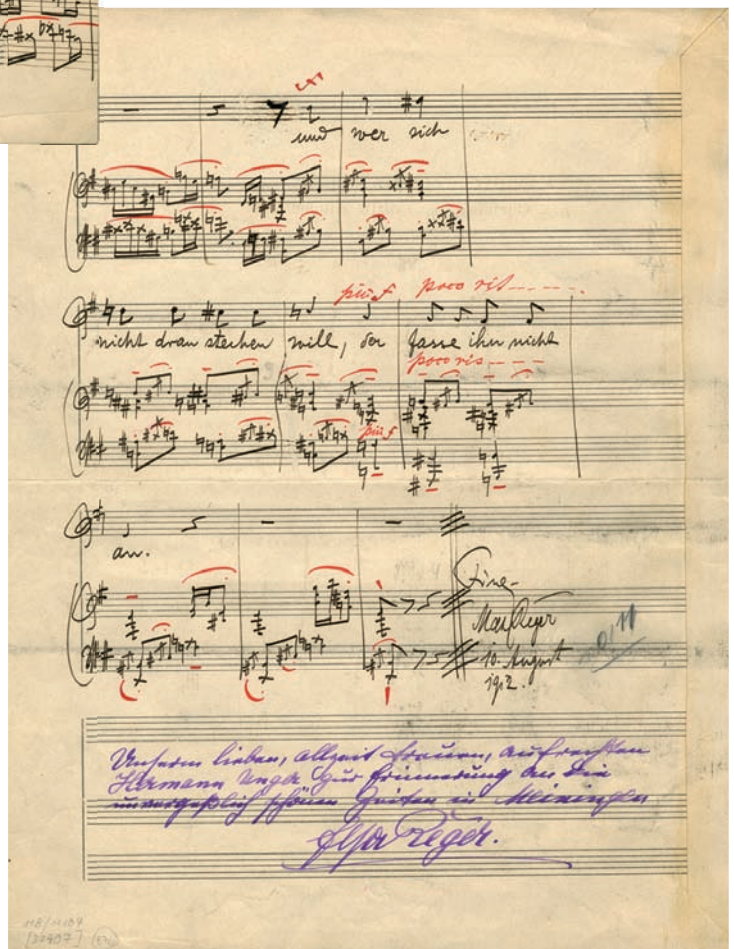 und wer sich
più f poco rit
nicht dran stechen will, der fasse ihn nicht
poco rit
più f
an.
Fine
Max Reger
10. August
1912.
Unserm lieben, allzeit treuen, aufrechten
Hermann Unger zur Erinnerung an die
unvergeßlich schönen Zeiten in Meiningen
Elsa Reger.